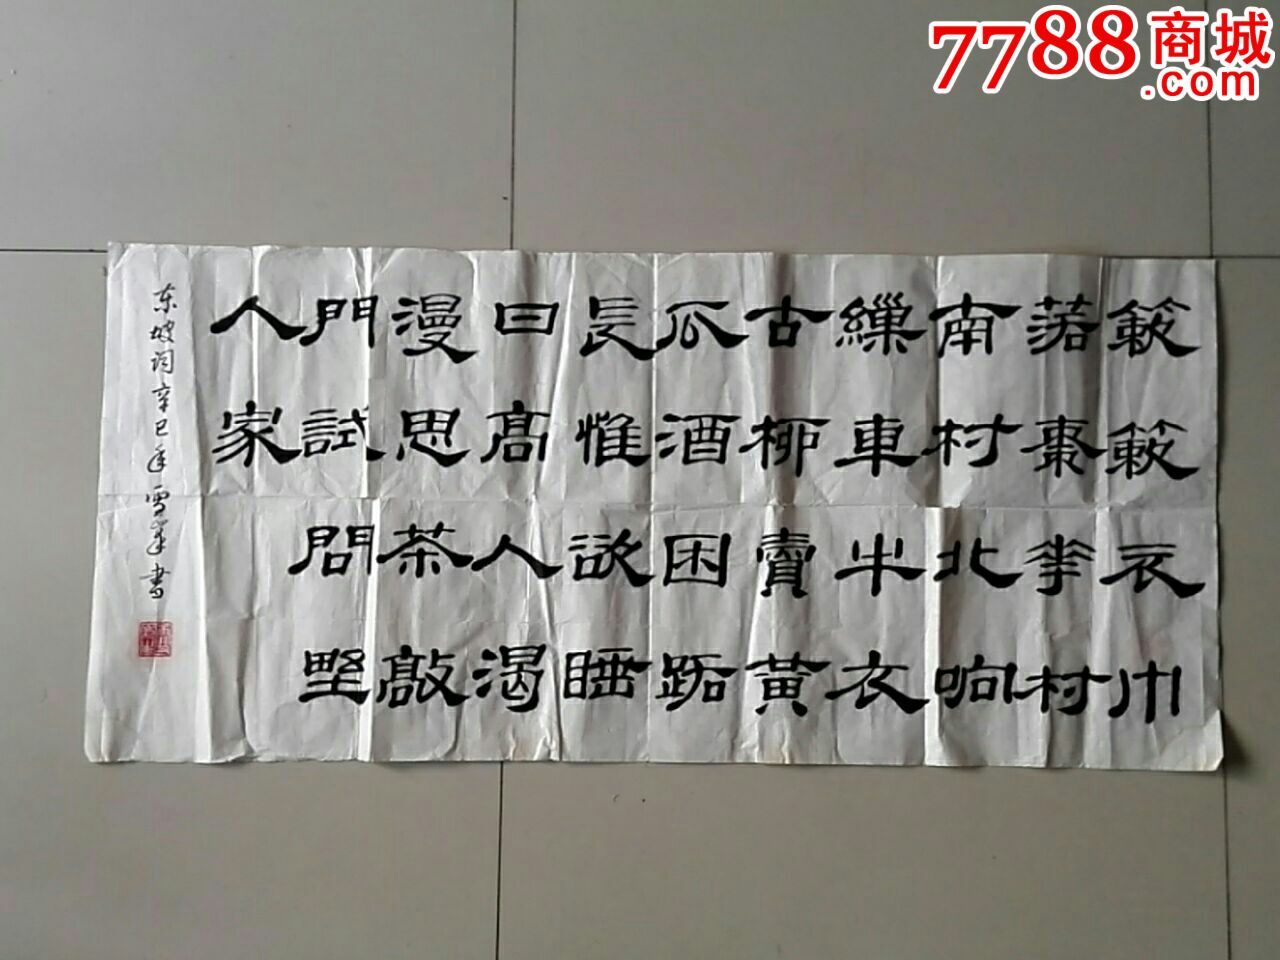 7788商城
.com
簌簌衣巾
落棗華村
南村北响
繅車牛衣
古柳賣黃
瓜酒困路
長惟欲睡
日高人渴
漫思茶敲
門試問野
人家
东坡词辛巳年雪峯書